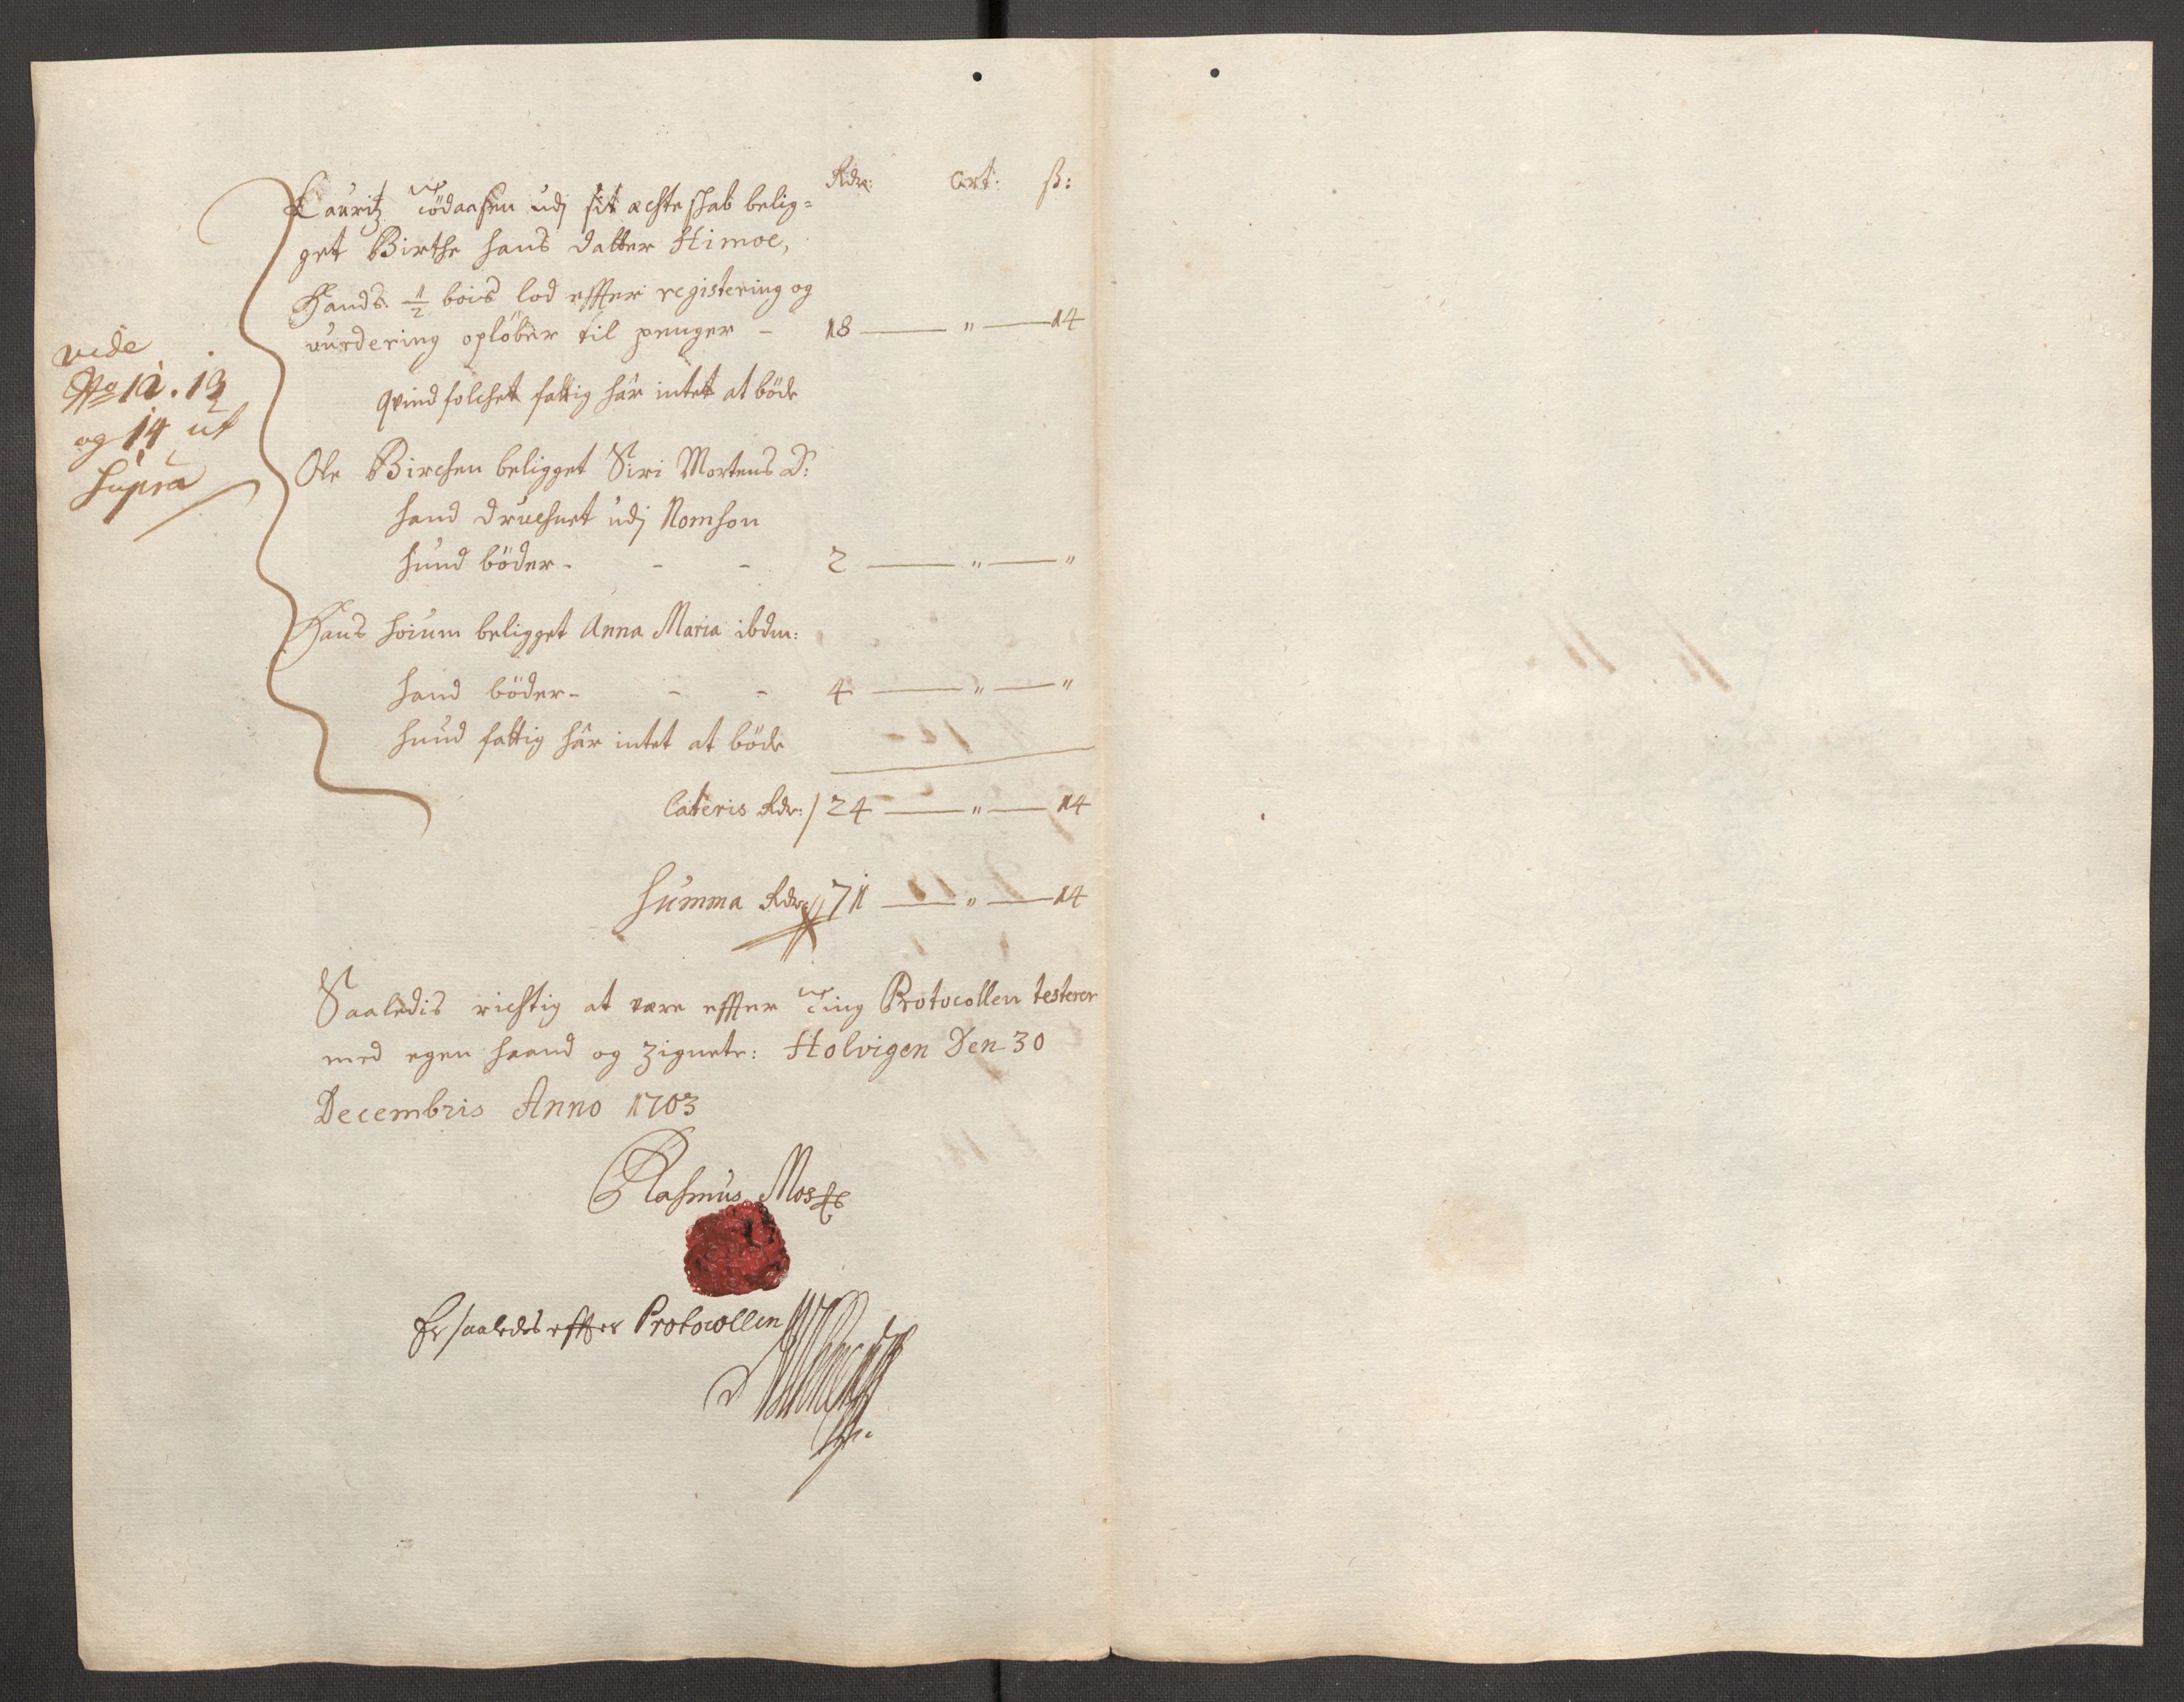 Rdr: Ort: ß:
Lauritz Tödaasen udj sit ächteskab belig=
get Birthe Hans datter Himoe,
Hands ½ boes lod effter registering og
vurdering opløber til penger - 18 — " — 14
qvindfolchet fattig har intet at böde
vide
No 12. 13
og 14 ut
supra
Ole Birchen beligget Siri Mortens D:
hand druchnet udj Nomson
hund böder - - - 2 — " — "
Hans Hoium beligget Anna Maria ibdm:
hand böder - - - 4 — " — "
hund fattig har intet at böde
Lateris Rdr: 24 — " — 14
Summa Rdr 71 — " — 14
Saaledis richtig at være effter Ting Protocollen testerer
med egen haand og Zignete: Holvigen Den 30
Decembris Anno 1703
Rasmus Mosse
Er saaledes effter Protocollen